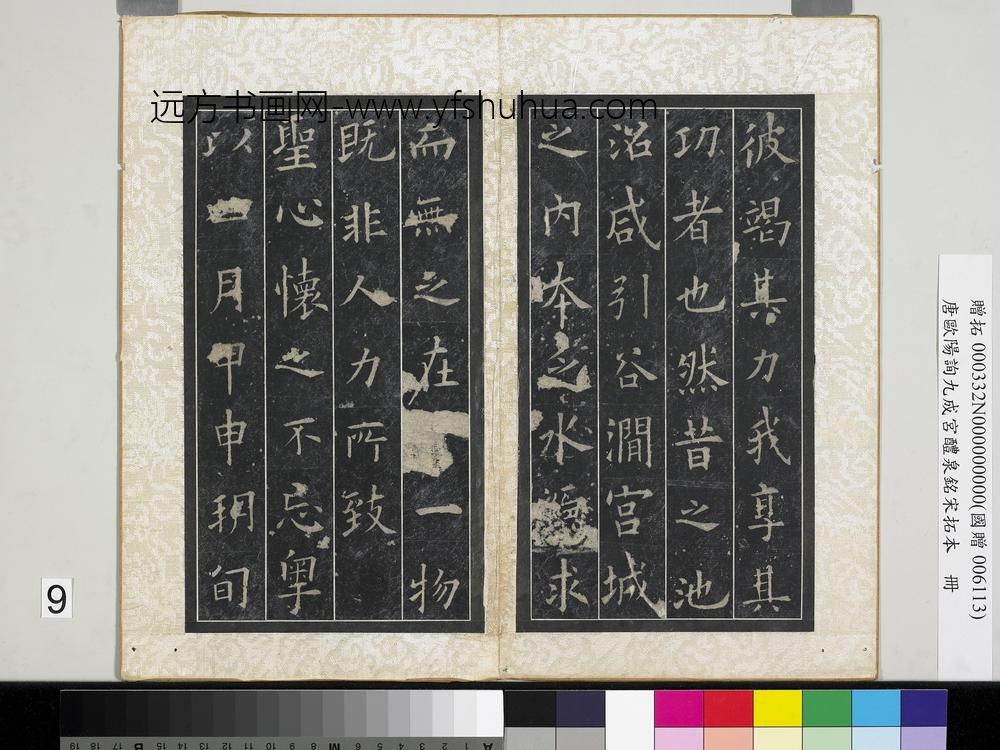 远方书画网-www.yfshuhua.com
彼竭其力我享其
功者也然昔之池
沼咸引谷澗宮城
之內本乏水求
而無之在一物
既非人力所致
聖心懷之不忘粵
以月甲申朔旬
贈拓 000332N000000000(國贈 006113)
唐歐陽詢九成宮醴泉銘宋拓本 冊
9
19 18 17 B 16 15 14 13 12 11 10 9 8 M 7 6 5 4 3 2 1 A